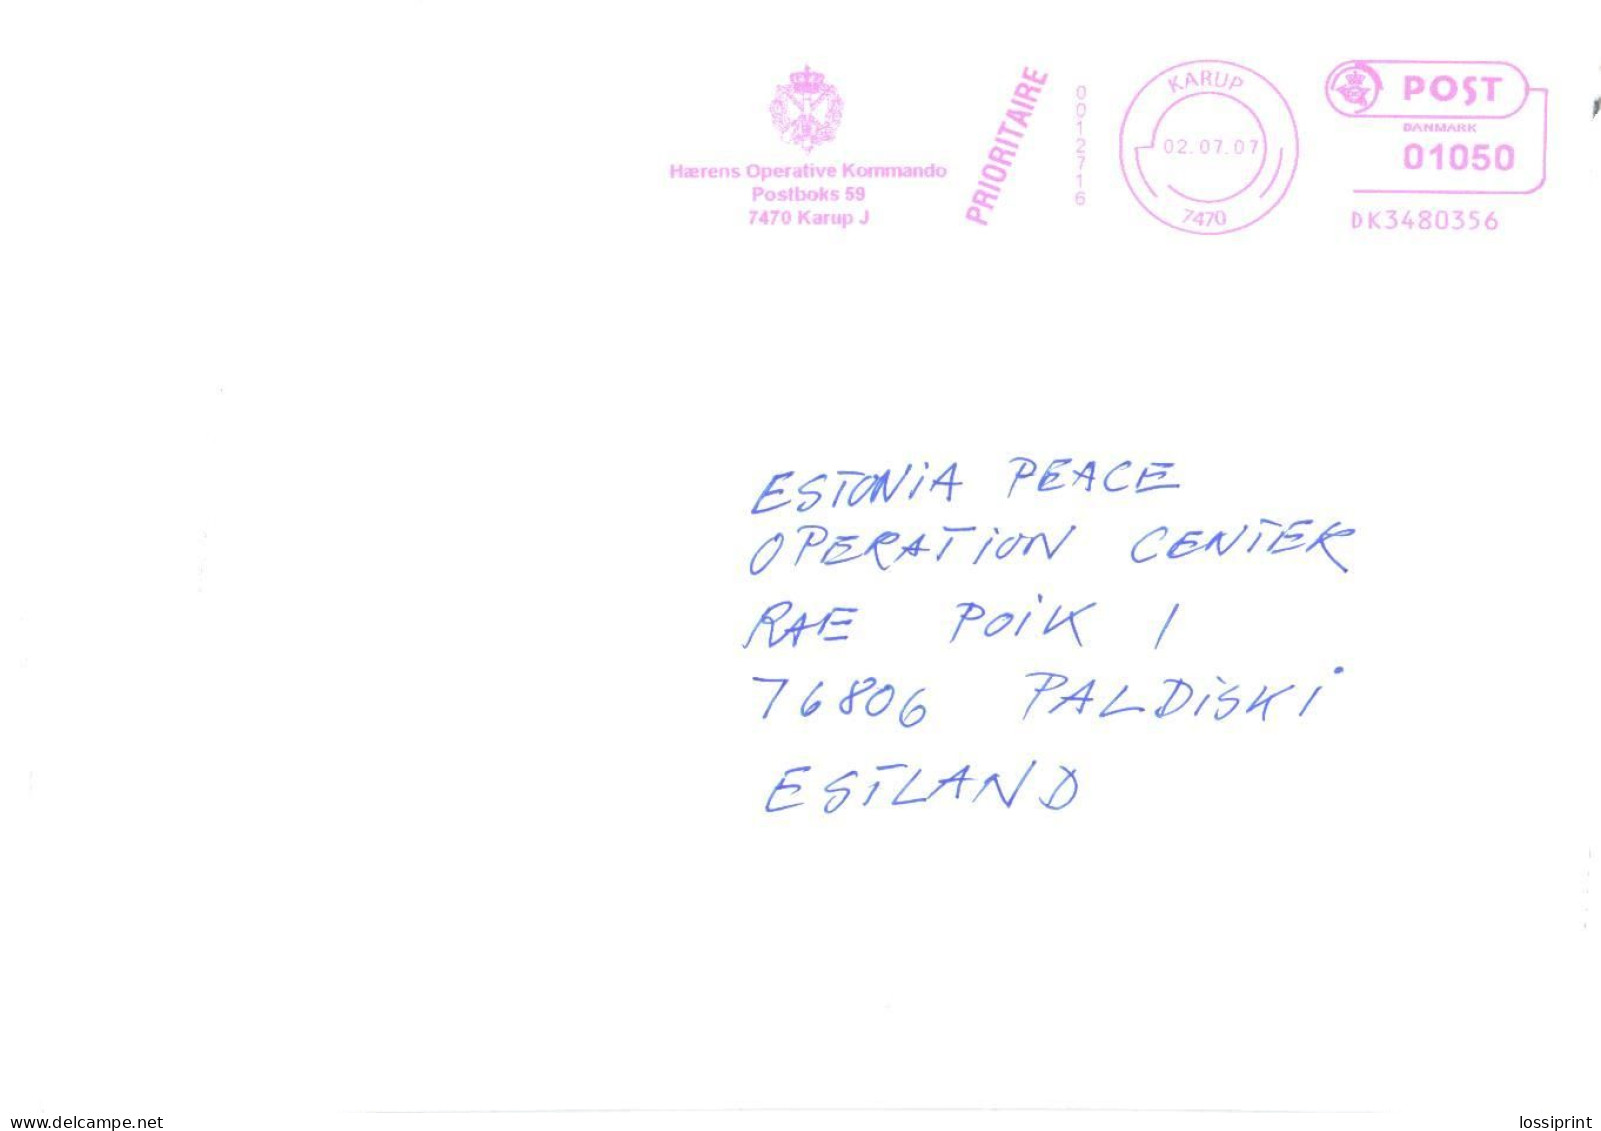 Hærens Operative Kommando
Postboks 59
7470 Karup J
PRIORITAIRE
0012716
KARUP
02.07.07
7470
POST
DANMARK
01050
DK3480356
ESTONiA PEACE
OPERATiON CENTER
RAE POiK 1
76806 PALDiSKi
ESTLAND
www.delcampe.net
lossiprint